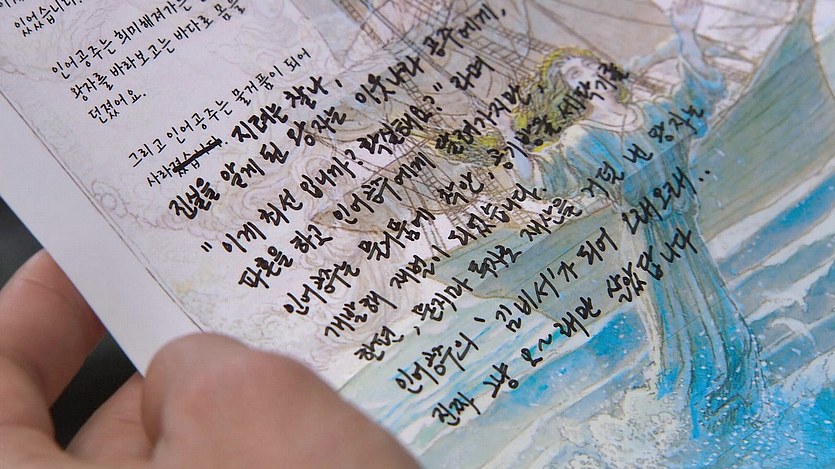 있었습니다.
인어공주는 희미해져가는
왕자를 바라보고는 바다로 몸을
던졌어요.
그리고 인어공주는 물거품이 되어
사라졌습니다 지려는 찰나,
진실을 알게 된 왕자는 이웃나라 공주에게,
"이게 최선 입니까? 확실해요?" 라며
파혼을 하고 인어공주에게 달려가지만,
인어공주는 물거품에 착안, 공기방울 세탁기를
개발해 재벌이 되었습니다.
한편, 투자로 재산을 거덜 낸 왕자는
인어공주의 '김비서'가 되어 오래오래..
진짜 그냥 오~래만 살았답니다